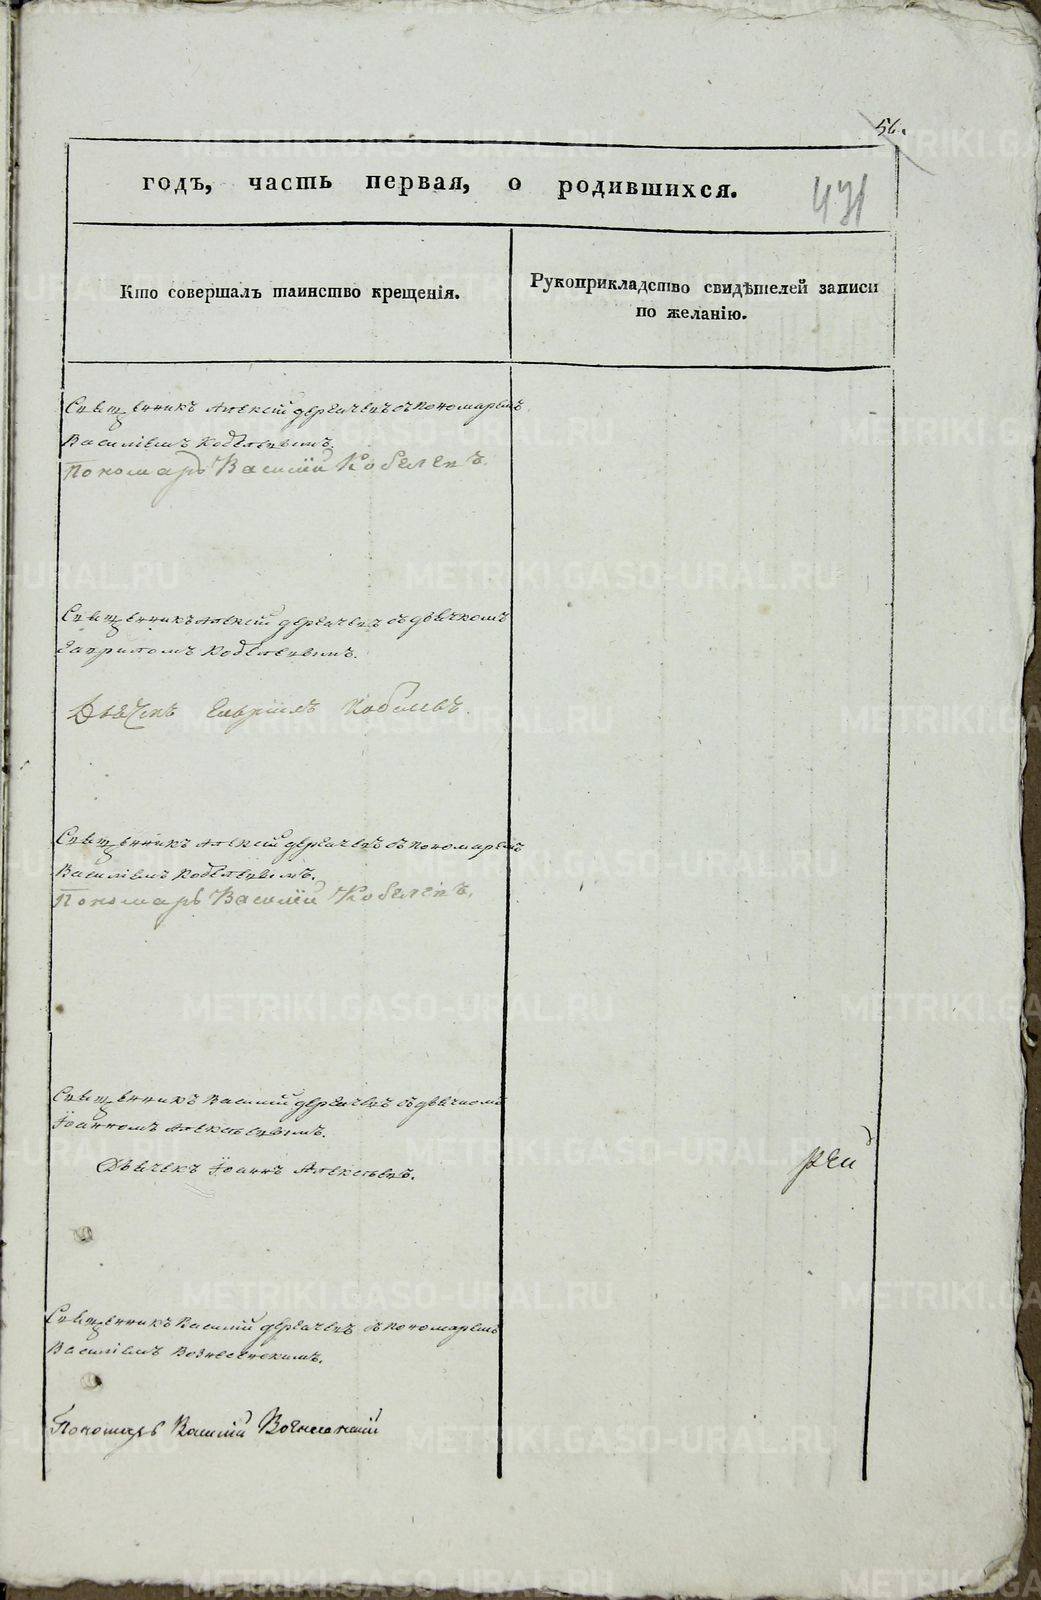 56.
годъ, часть первая, о родившихся.
431
Кто совершалъ таинство крещенія.
Рукоприкладство свидѣтелей записи
по желанію.
Священникъ Алексій Дергачевъ съ пономаремъ
Василіемъ Кобелевымъ.
Пономарь Василій Кобелевъ.
Священникъ Алексій Дергачевъ съ дьячкомъ
Гавріиломъ Кобелевымъ.
Дьячекъ Гавріилъ Кобелевъ.
Священникъ Алексій Дергачевъ съ пономаремъ
Василіемъ Кобелевымъ.
Пономарь Василій Кобелевъ.
Священникъ Василій Дергачевъ съ дьячкомъ
Іоанномъ Алексѣевымъ.
Дьячекъ Іоаннъ Алексѣевъ.
Священникъ Василій Дергачевъ съ пономаремъ
Василіемъ Вознесенскимъ.
Пономарь Василій Вознесенскій
METRIKI.GASO-URAL.RU